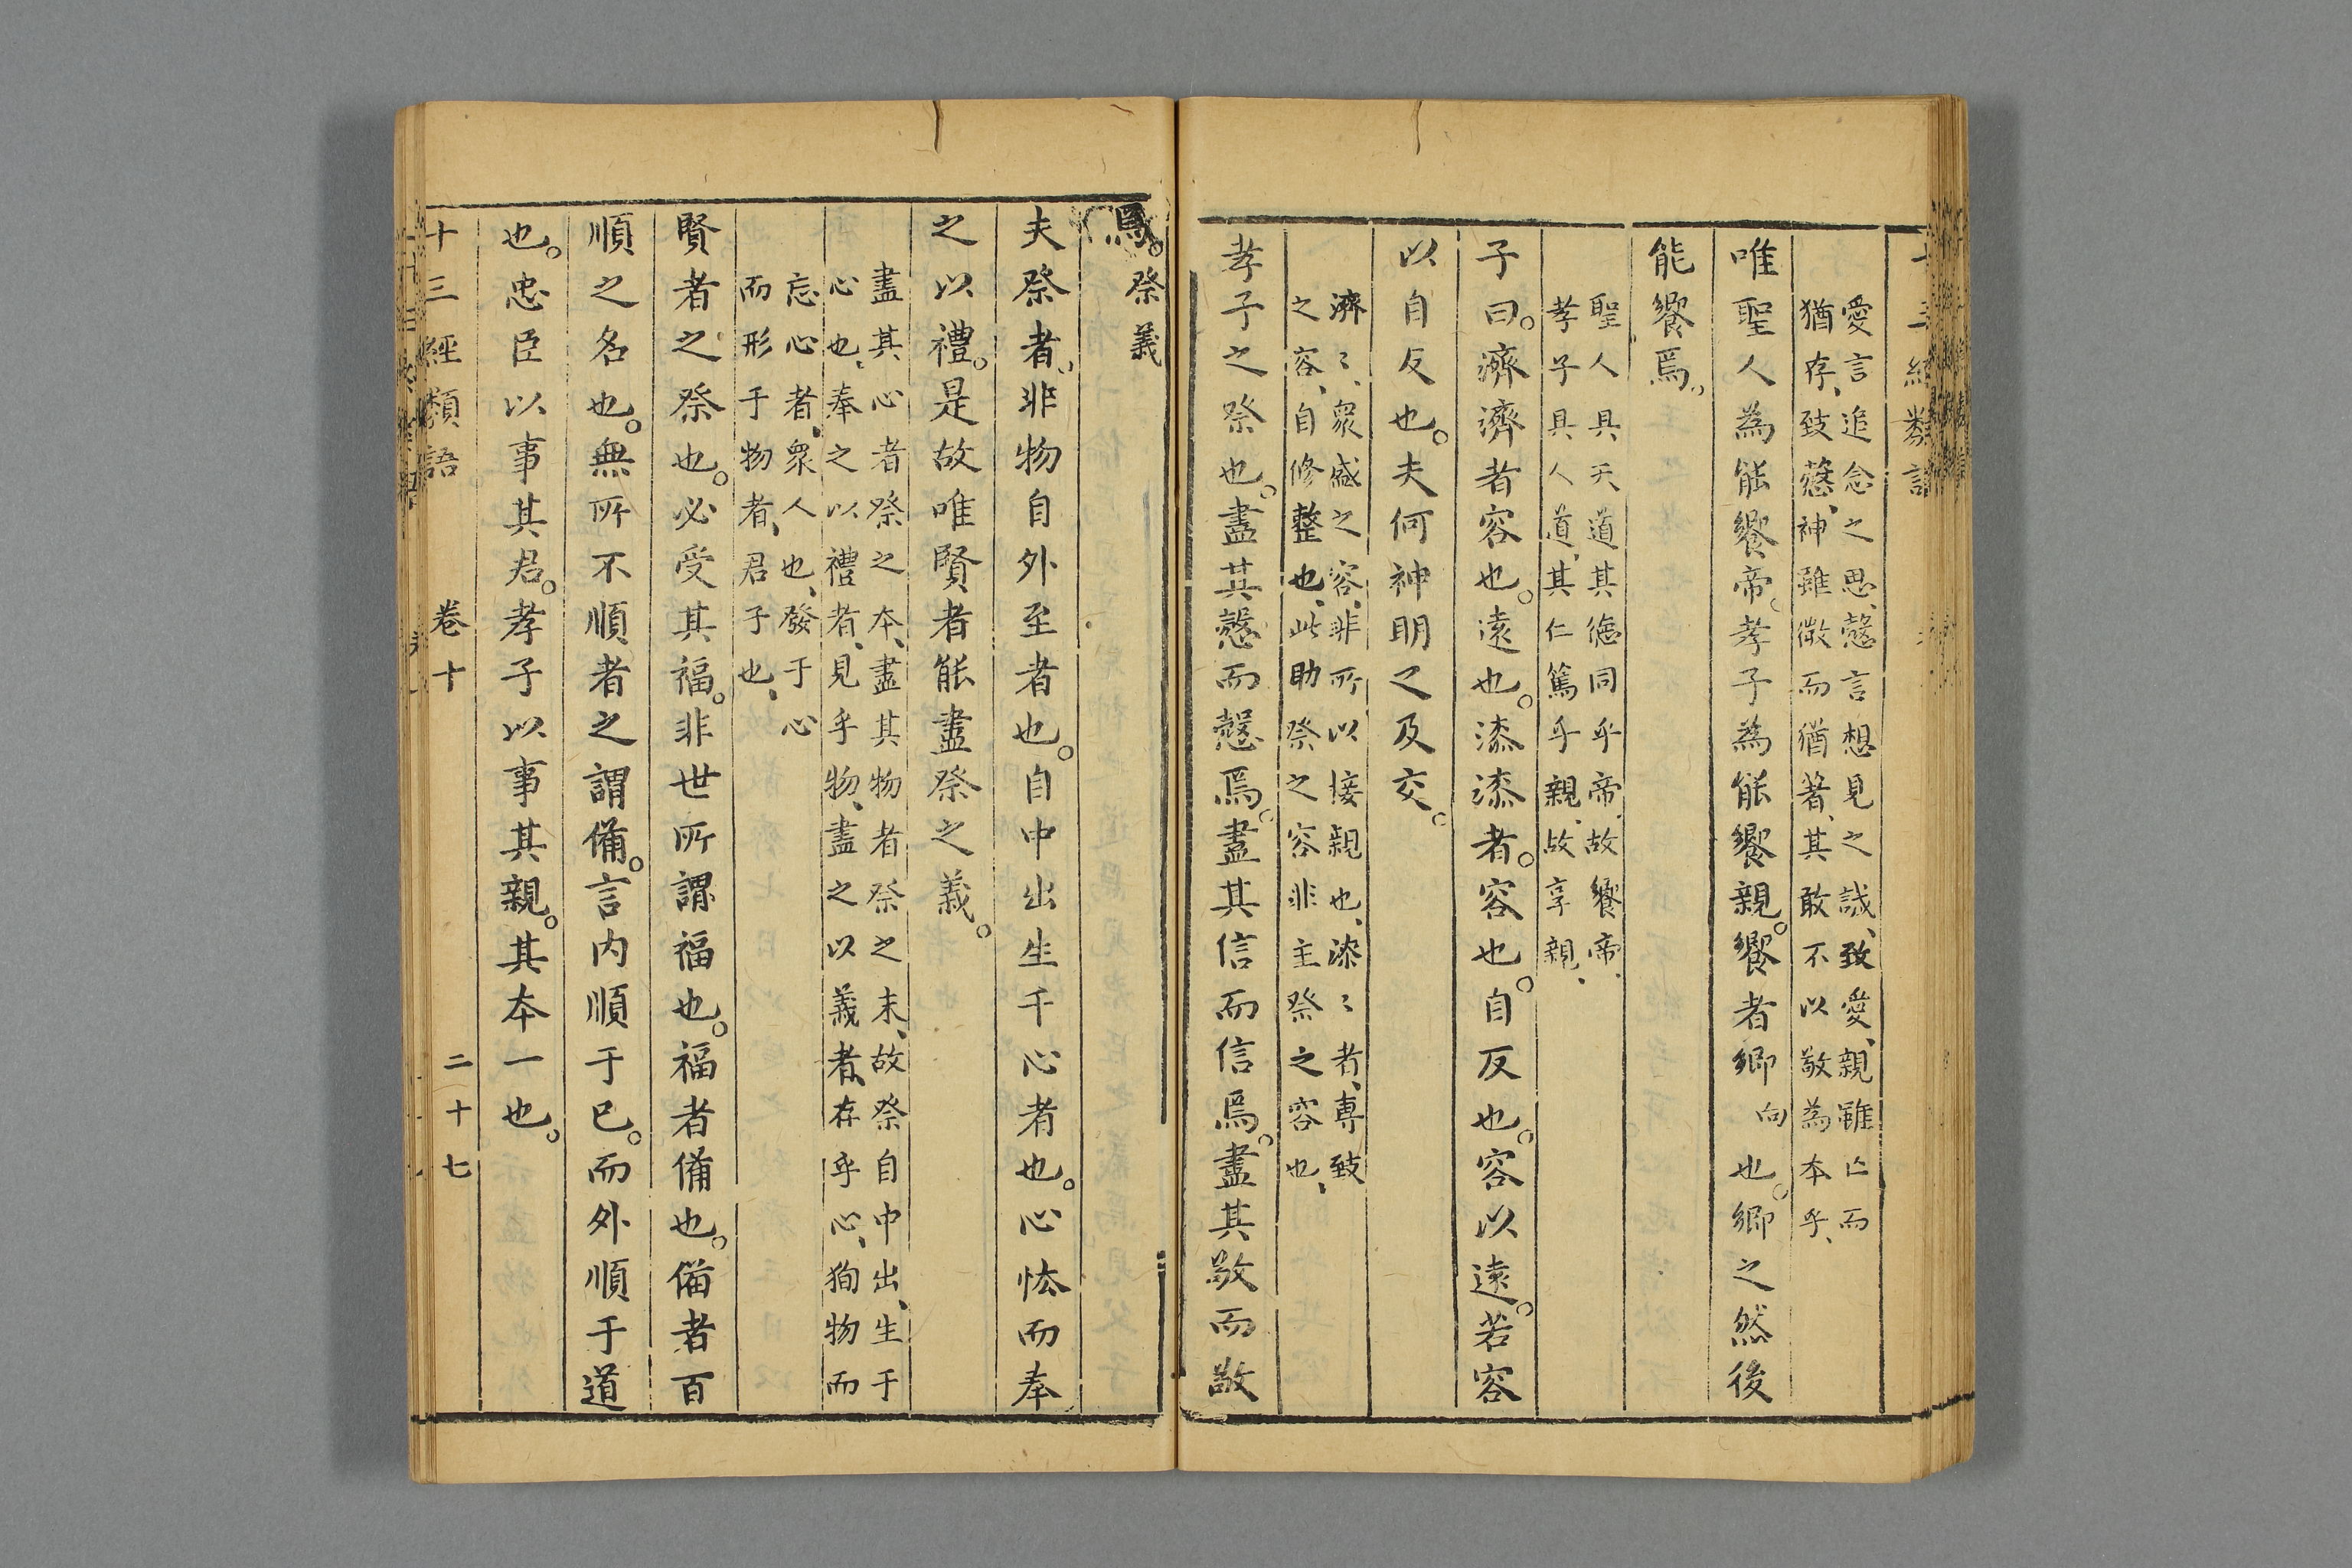 愛言追念之思慤言想見之誠致愛親雖亡而
猶存致慤神雖微而猶著其敢不以敬為本乎
唯聖人為能饗帝孝子為能饗親。饗者鄉向也。鄉之然後
能饗焉。
聖人具天道其德同乎帝故饗帝
孝子具人道其仁篤乎親故享親
子曰。濟濟者容也。遠也。漆漆者。容也。自反也。容以遠。若容
以自反也。夫何神明之及交。
濟〻眾盛之容非所以接親也漆〻者專致
之容自修整也此助祭之容非主祭之容也
孝子之祭也。盡其慤而慤焉。盡其信而信焉。盡其敬而敬
焉。祭義
夫祭者、非物自外至者也。自中出生于心者也。心怵而奉
之以禮。是故唯賢者能盡祭之義。
盡其心者祭之本、盡其物者祭之末、故祭自中出、生于
心也、奉之以禮者、見乎物、盡之以義者、存乎心、狥物而
忘心者、眾人也、發于心
而形于物者、君子也、
賢者之祭也。必受其福。非世所謂福也。福者備也。備者百
順之名也。無所不順者之謂備。言內順于已。而外順于道
也。忠臣以事其君。孝子以事其親。其本一也。
十三經類語 卷十 二十七